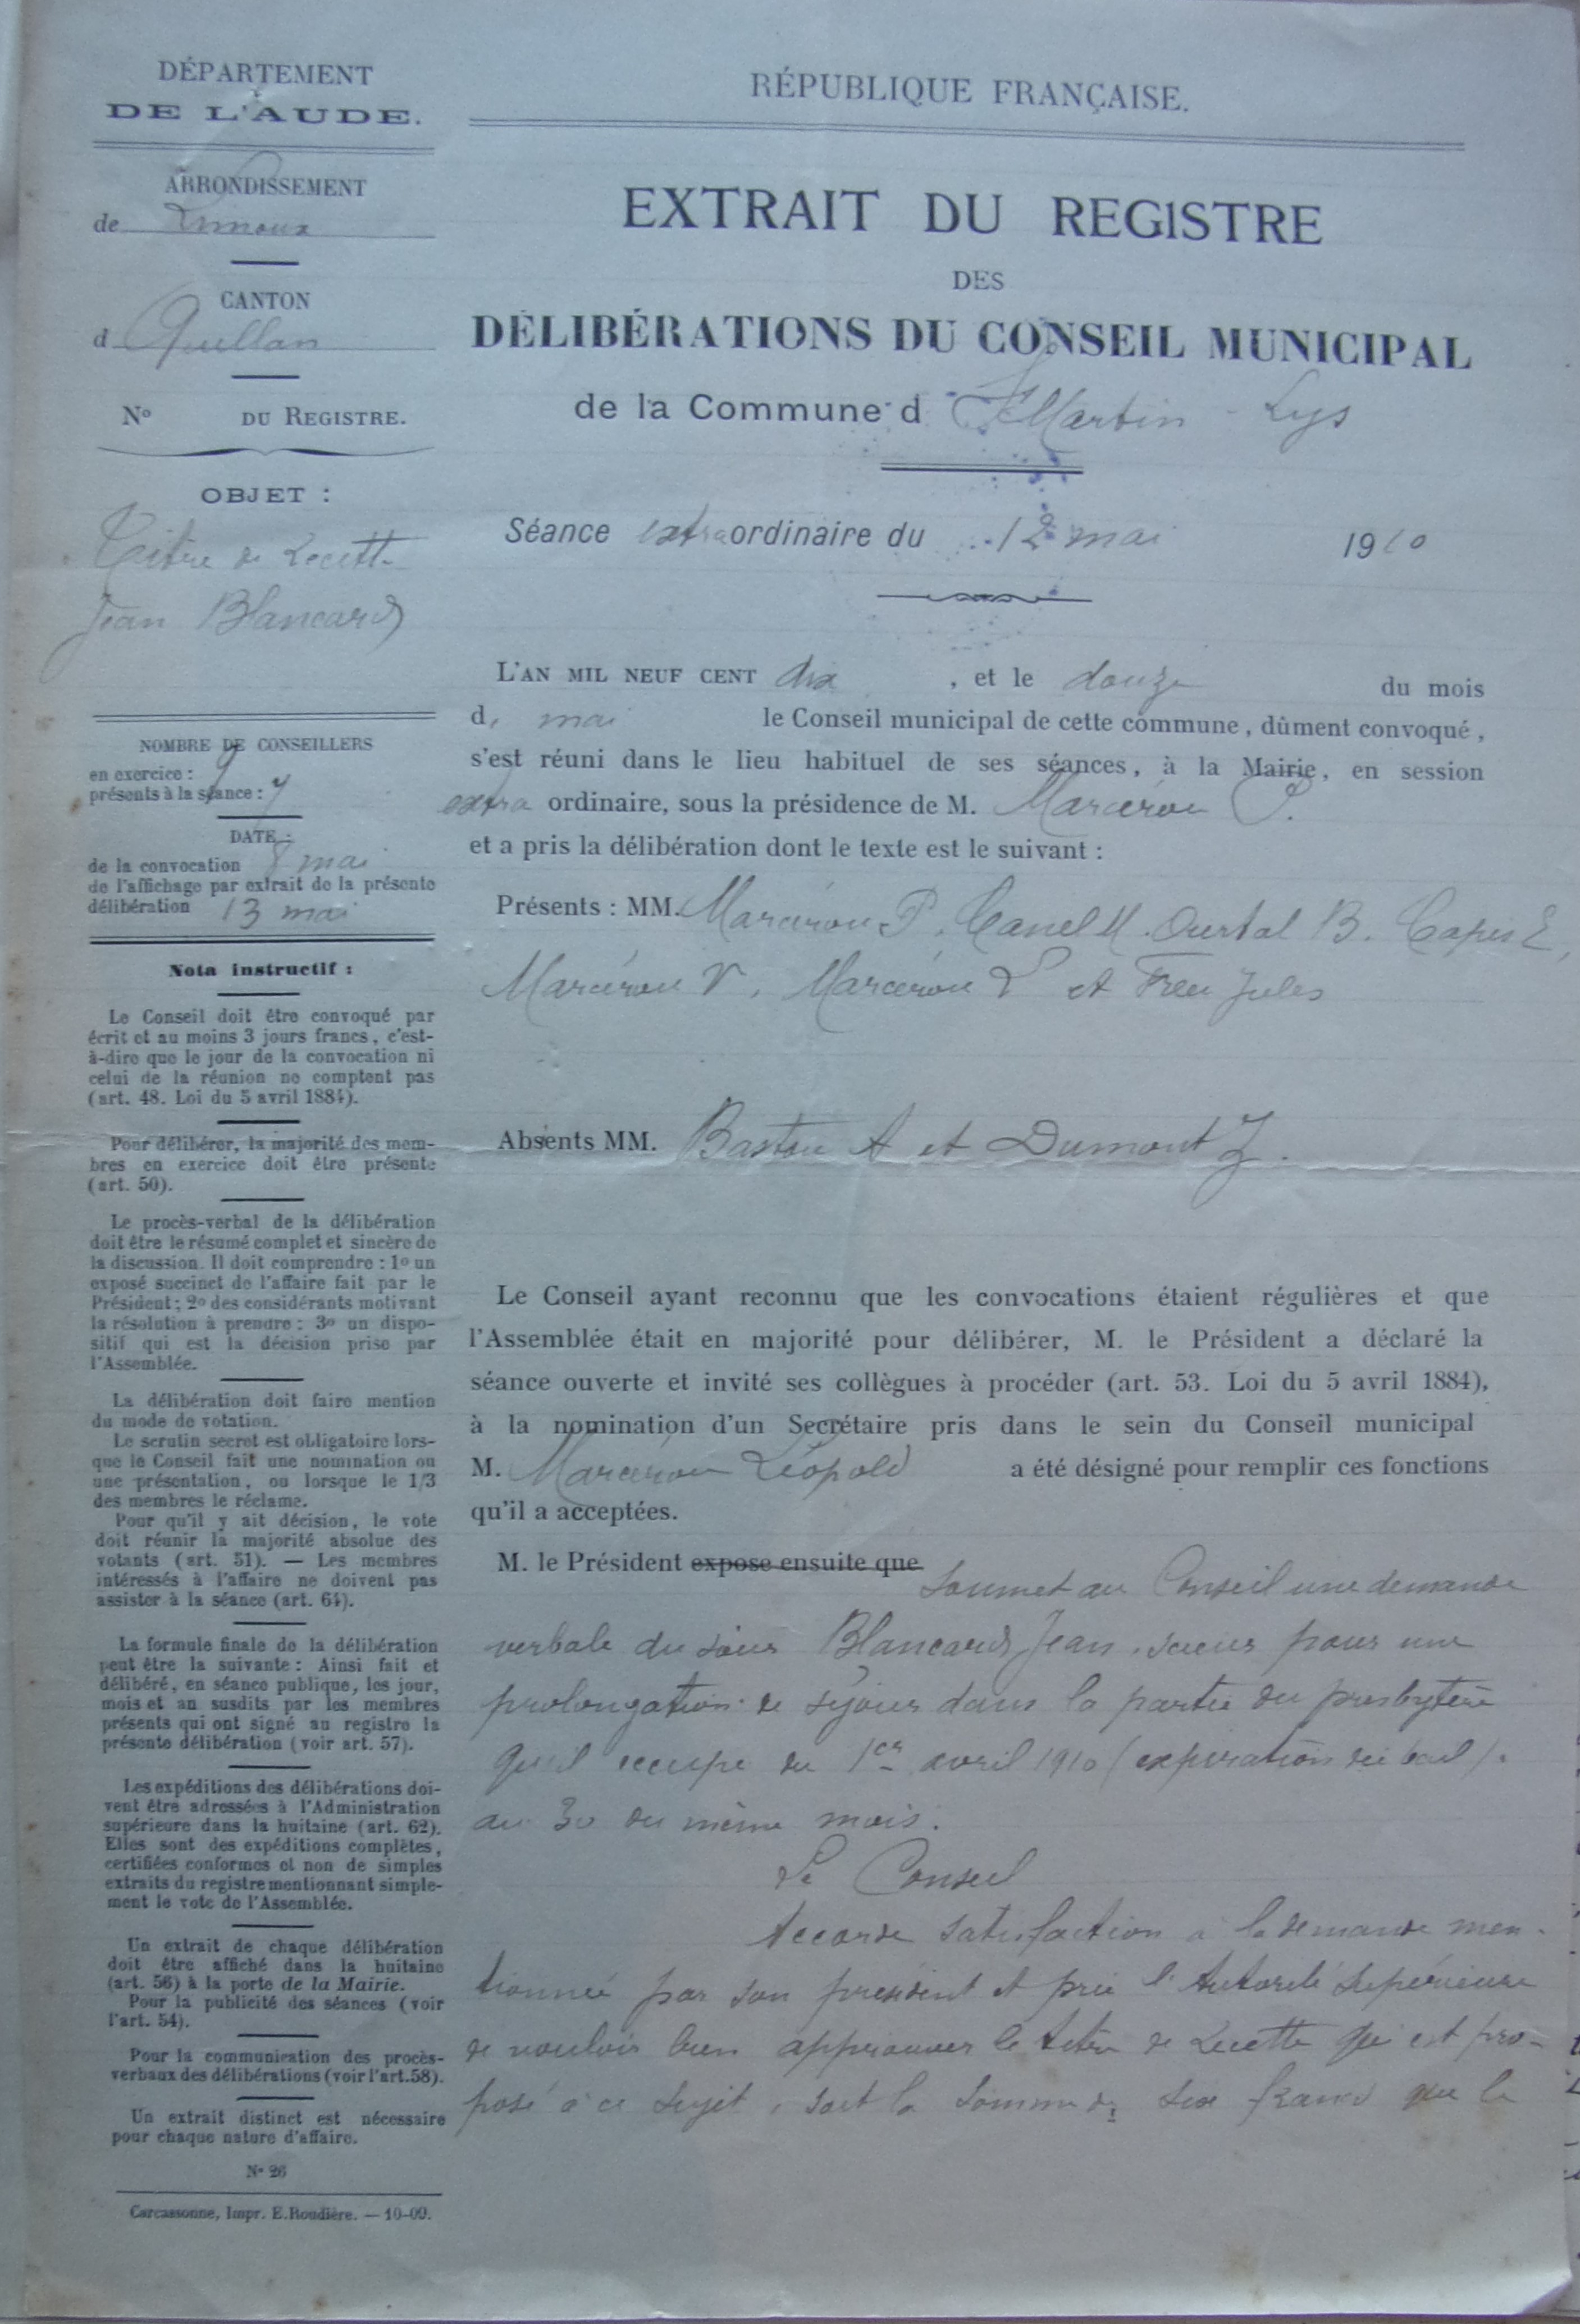 DÉPARTEMENT
DE L'AUDE.
ARRONDISSEMENT
de Limoux
CANTON
d Quillan
N° DU REGISTRE.
OBJET :
Titre de Recette
Jean Blancard
NOMBRE DE CONSEILLERS
en exercice : 9
présents à la séance : 7
DATE :
de la convocation 8 mai
de l'affichage par extrait de la présente
délibération 13 mai
Nota instructif :
Le Conseil doit être convoqué par
écrit et au moins 3 jours francs, c'est-
à-dire que le jour de la convocation ni
celui de la réunion ne comptent pas
(art. 48. Loi du 5 avril 1884).
Pour délibérer, la majorité des mem-
bres en exercice doit être présente
(art. 50).
Le procès-verbal de la délibération
doit être le résumé complet et sincère de
la discussion. Il doit comprendre : 1o un
exposé succinct de l'affaire fait par le
Président ; 2o des considérants motivant
la résolution à prendre ; 3o un dispo-
sitif qui est la décision prise par
l'Assemblée.
La délibération doit faire mention
du mode de votation.
Le scrutin secret est obligatoire lors-
que le Conseil fait une nomination ou
une présentation, ou lorsque le 1/3
des membres le réclame.
Pour qu'il y ait décision, le vote
doit réunir la majorité absolue des
votants (art. 51). — Les membres
intéressés à l'affaire ne doivent pas
assister à la séance (art. 64).
La formule finale de la délibération
peut être la suivante : Ainsi fait et
délibéré, en séance publique, les jour,
mois et an susdits par les membres
présents qui ont signé au registre la
présente délibération (voir art. 57).
Les expéditions des délibérations doi-
vent être adressées à l'Administration
supérieure dans la huitaine (art. 62).
Elles sont des expéditions complètes,
certifiées conformes et non de simples
extraits du registre mentionnant simple-
ment le vote de l'Assemblée.
Un extrait de chaque délibération
doit être affiché dans la huitaine
(art. 56) à la porte de la Mairie.
Pour la publicité des séances (voir
l'art. 54).
Pour la communication des procès-
verbaux des délibérations (voir l'art. 58).
Un extrait distinct est nécessaire
pour chaque nature d'affaire.
N° 26
Carcassonne, Impr. E. Roudière. — 10-09.
RÉPUBLIQUE FRANÇAISE.
EXTRAIT DU REGISTRE
DES
DÉLIBÉRATIONS DU CONSEIL MUNICIPAL
de la Commune d St Martin - Lys
Séance extraordinaire du 12 mai 1910
L'AN MIL NEUF CENT dix, et le douze du mois
de mai le Conseil municipal de cette commune, dûment convoqué,
s'est réuni dans le lieu habituel de ses séances, à la Mairie, en session
extra ordinaire, sous la présidence de M. Marcérou P.
et a pris la délibération dont le texte est le suivant :
Présents : MM. Marcérou P. Canel M. Ourtal B. Capis E,
Marcérou V, Marcérou L et Freu Jules
Absents MM. Bastou A et Dumont J.
Le Conseil ayant reconnu que les convocations étaient régulières et que
l'Assemblée était en majorité pour délibérer, M. le Président a déclaré la
séance ouverte et invité ses collègues à procéder (art. 53. Loi du 5 avril 1884),
à la nomination d'un Secrétaire pris dans le sein du Conseil municipal
M. Marcérou Léopold a été désigné pour remplir ces fonctions
qu'il a acceptées.
M. le Président expose ensuite que soumet au Conseil une demande
verbale du sieur Blancard Jean, pour une
prolongation de séjour dans la partie du presbytère
qu'il occupe du 1er avril 1910 (expiration du bail)
au 30 du même mois.
Le Conseil
Accorde satisfaction à la demande men-
tionnée par son président et prie l'Autorité Supérieure
de vouloir bien approuver le titre de Recette qui est pro-
posé à ce sujet, soit la somme de six francs que le